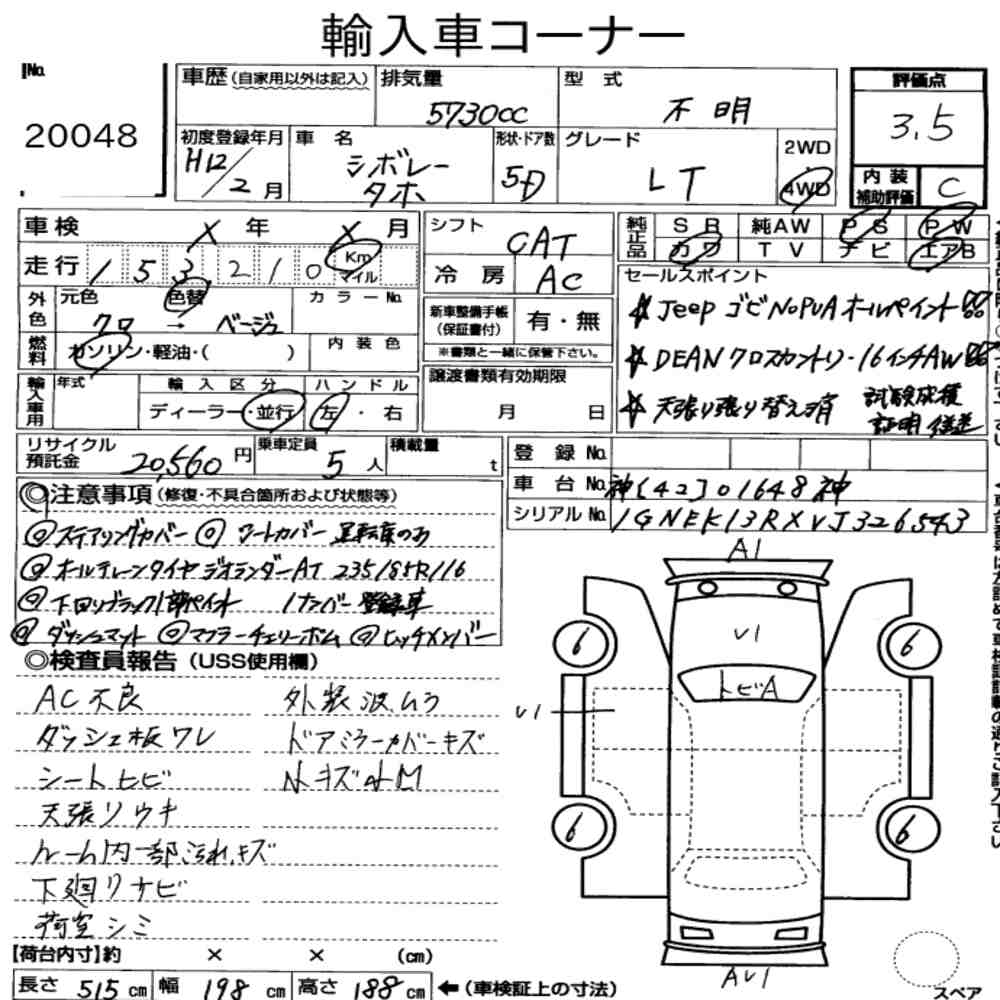 輸入車コーナー
No.
20048
車歴(自家用以外は記入)
排気量
5730cc
型 式
不明
評価点
3.5
内装補助評価
C
初度登録年月
H12/2月
車 名
シボレー
タホ
形状・ドア数
5D
グレード
LT
2WD
4WD
車検 X 年 X 月
走行 153210 Km マイル
シフト
CAT
冷 房 AC
純正品
SR 純AW PS PW
カワ TV ナビ エアB
外色
元色
色替
カラーNo.
クロ → ベージュ
燃料
ガソリン・軽油・( )
内装色
新車整備手帳
(保証書付)
有・無
※書類と一緒に保管下さい。
セールスポイント
☆ Jeep ゴビNoPUA オールペイント
☆ DEAN クロスカントリー16インチAW
☆ 天張り張り替え済
輸入車用
年式
輸入区分
ハンドル
ディーラー・並行
左・右
譲渡書類有効期限
月 日
リサイクル
預託金
20,560円
乗車定員
5人
積載量
t
登録No.
車台No. 神[42]01648神
シリアルNo. 1GNEK13RXVJ326543
◎注意事項(修復・不具合箇所および状態等)
◎ステアリングカバー ◎シートカバー 運転席のみ
◎オールテレーンタイヤ ジオランダーAT 235/85R/16
◎下回りブラック1部ペイント 1ナンバー登録車
◎ダッシュマット ◎マフラーチェリーボム ◎ヒッチメンバー
◎検査員報告(USS使用欄)
AC不良 外装波ムラ
ダッシュ板ワレ ドアミラーカバーキズ
シートヒビ 小キズ小凹
天張リウキ
ルーム内一部汚れ、キズ
下廻リサビ
荷室シミ
A1
U1
トビA
U1
6
6
6
6
AU1
スペア
【荷台内寸】約 × × (cm)
長さ 515cm 幅 198cm 高さ 188cm ←(車検証上の寸法)